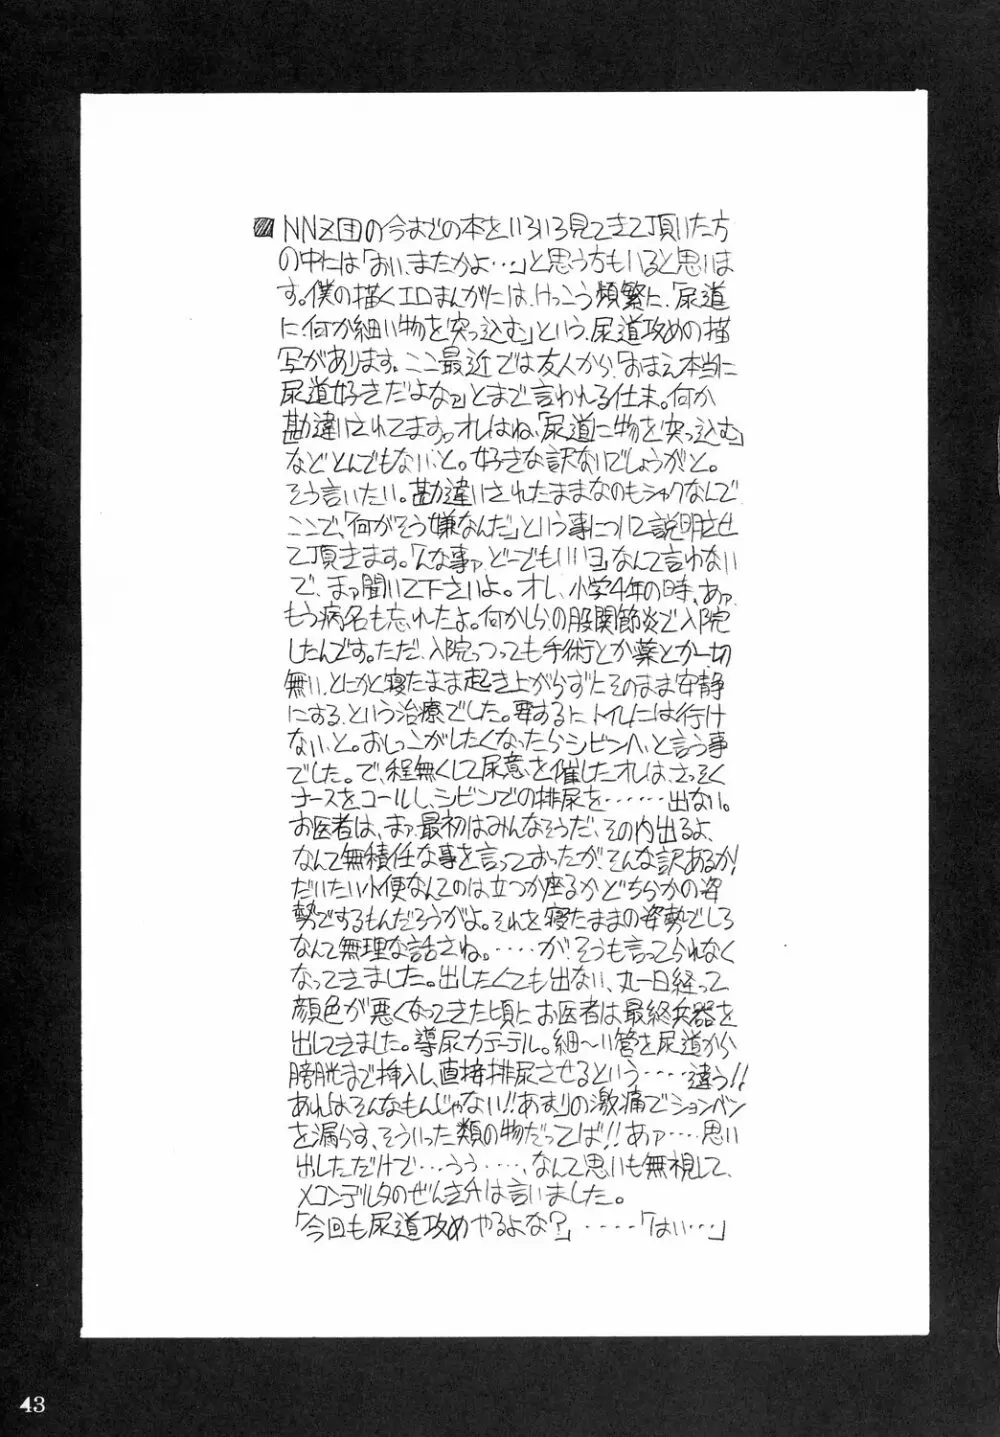 NNZ団の今までの本をいろいろ見てきて頂いた方
の中には「おい、またかよ…」と思う方もいると思いま
す。僕の描くエロまんがには、けっこう頻繁に、「尿道
に何か細い物を突っ込む」という、尿道攻めの描
写があります。ここ最近では友人から、「おまえ本当に
尿道好きだよなァ」とまで言われる仕末。何か
勘違いされてますっオレはね、「尿道に物を突っ込む」
などとんでもない、と。好きな訳ないでしょうがと。
そう言いたい。勘違いされたままなのもシャクなんで
ここで、「何がそう嫌なんだ」という事について説明させ
て頂きます。「んな事ァどーでもいいヨ」なんて言わない
で、まァ聞いて下さいよ。オレ、小学4年の時、あァ、
もう病名も忘れたよ。何かしらの股関節炎で入院
したんです。ただ、入院っつっても手術とか薬とか一切
無い、とにかく寝たまま起き上がらずにそのまま安静
にする、という治療でした。要するに トイレには行け
ない、と。おしっこがしたくなったらシビンへ、と言う事
でした。で、程無くして尿意を催したオレは、さっそく
ナースをコールし、シビンでの排尿を……出ない。
お医者は、まァ、最初はみんなそうだ、その内出るよ、
なんて無積任な事を言っておったがそんな訳あるか!
だいたい小便なんてのは立つか座るかどちらかの姿
勢でするもんだろうがよ。それを寝たままの姿勢でしろ
なんて無理な話さね。……が、そうも言ってられなく
なってきました。出したくても出ない、丸一日経って
顔色が悪くなってきた頃に お医者は最終兵器を
出してきました。導尿カテーテル。細〜い管を尿道から
膀胱まで挿入し、直接排尿させるという……違う!!
あれはそんなもんじゃない!!あまりの激痛でションベン
を漏らす、そういった類の物だってば!!あァ……思い
出しただけで…うぅ……、なんて思いも無視して、
メコンデルタのぜんきチは言いました。
「今回も尿道攻めやるよな?」……「はい…」
43